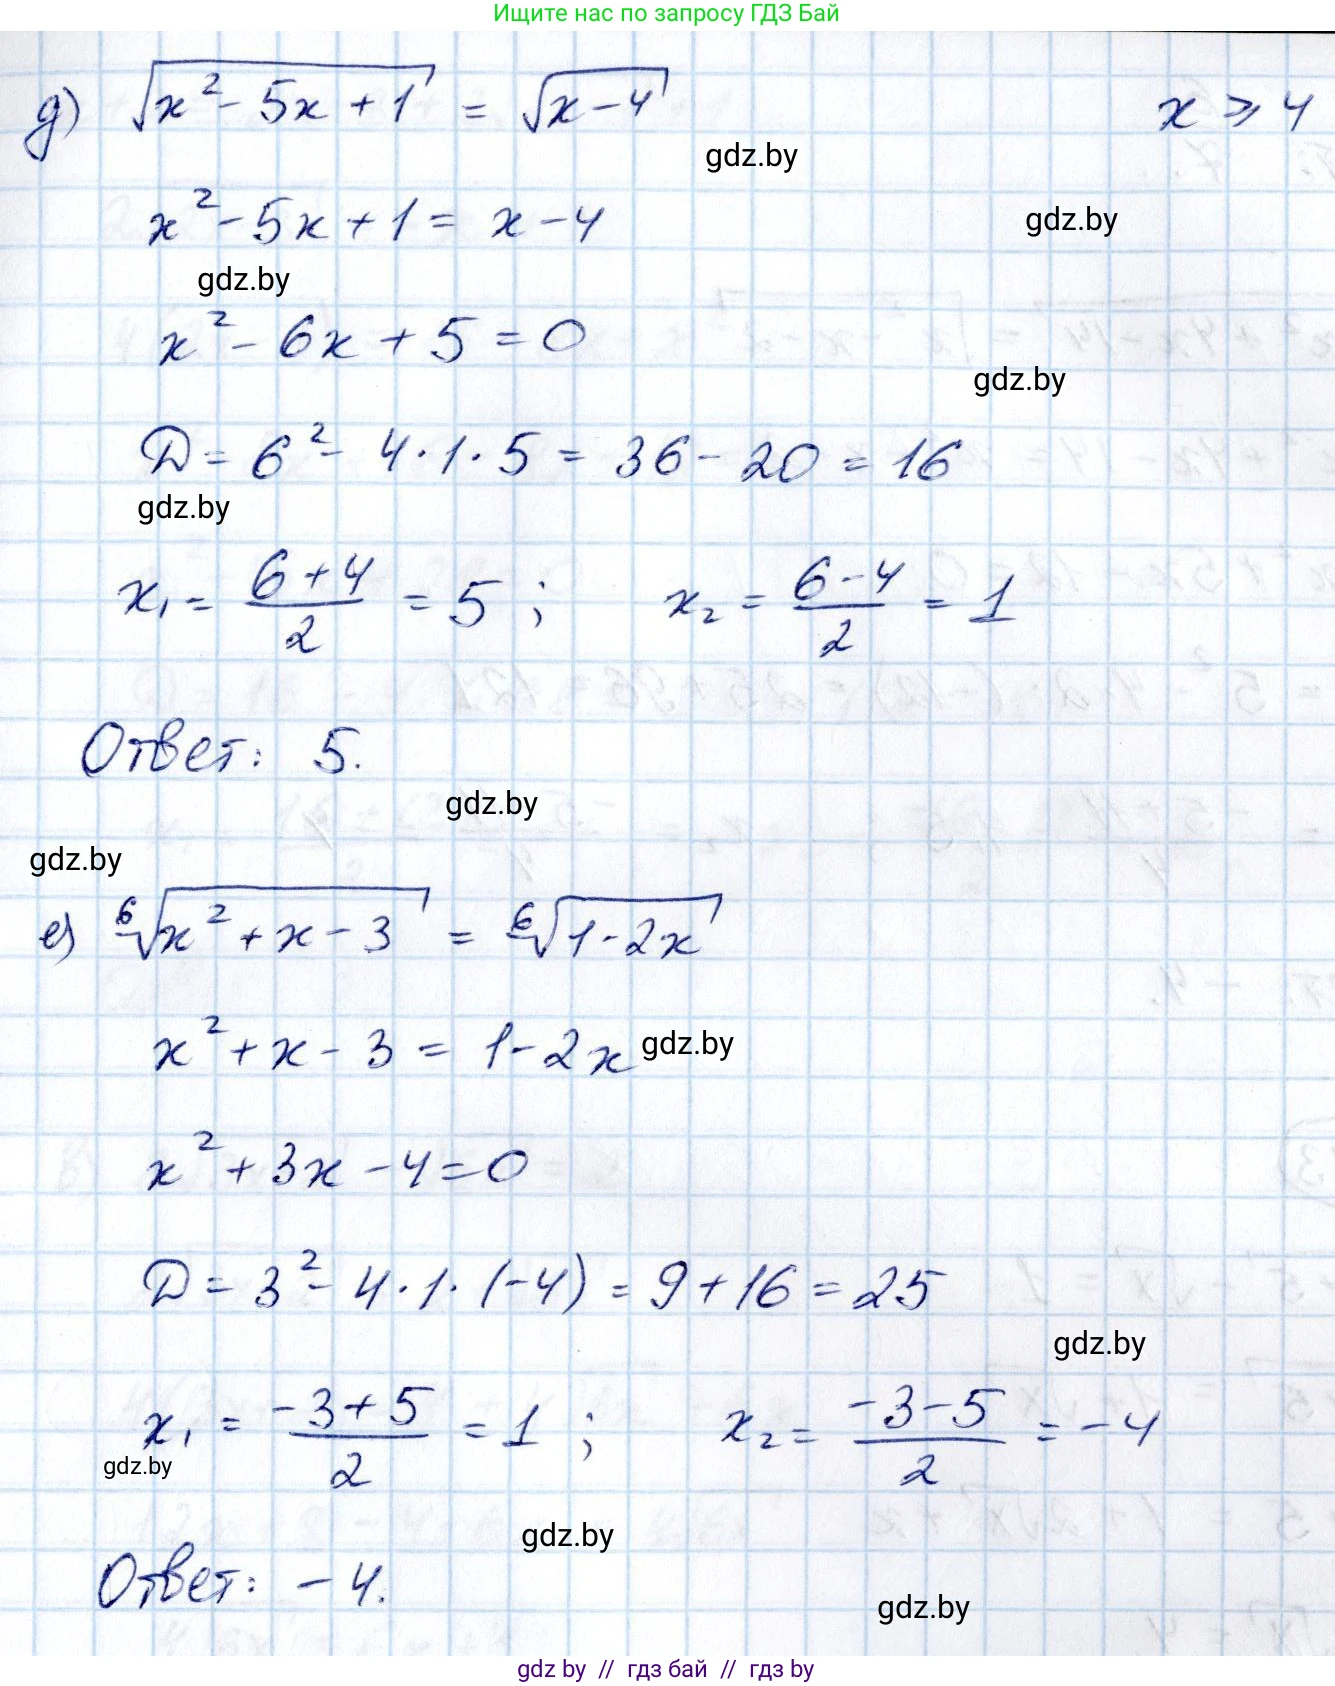 Ищите нас по запросу ГДЗ Бай
д) √(x² - 5x + 1) = √(x - 4) x ⩾ 4
gdz.by
x² - 5x + 1 = x - 4
gdz.by
gdz.by
x² - 6x + 5 = 0
gdz.by
D = 6² - 4·1·5 = 36 - 20 = 16
gdz.by
x₁ = (6+4)/2 = 5 ; x₂ = (6-4)/2 = 1
Ответ: 5.
gdz.by
gdz.by
е) ⁶√(x² + x - 3) = ⁶√(1 - 2x)
x² + x - 3 = 1 - 2x
gdz.by
x² + 3x - 4 = 0
D = 3² - 4·1·(-4) = 9 + 16 = 25
gdz.by
x₁ = (-3+5)/2 = 1 ; x₂ = (-3-5)/2 = -4
gdz.by
gdz.by
Ответ: -4.
gdz.by
gdz by // гдз бай // гдз by